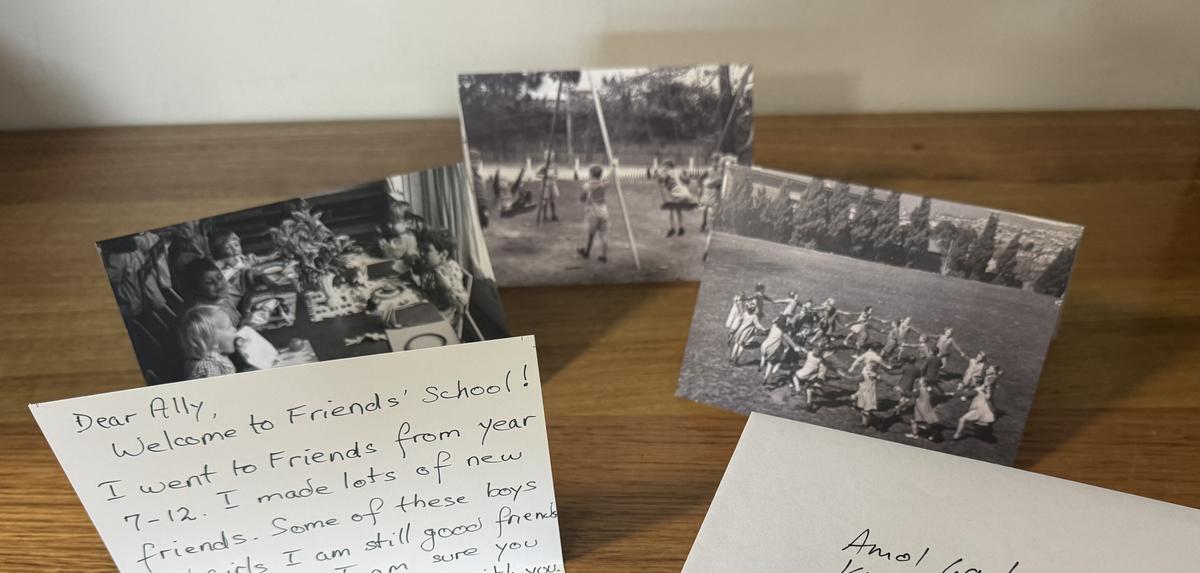 Dear Ally,
Welcome to Friends' School!
I went to Friends from year
7-12. I made lots of new
friends. Some of these boys
girls I am still good friends
I am sure you
with you.
Amol